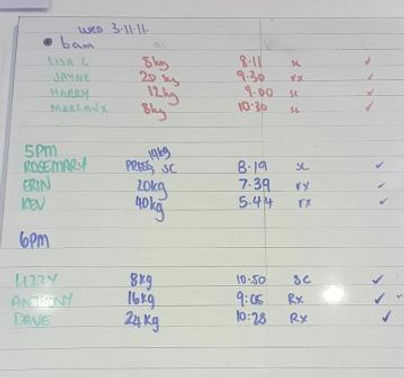 WED 3.11.11.
6am
LISA G 8kg 8.11 sc ✓
JAYNE 20 kg 9.30 rx ✓
HARRY 12kg 9.00 sc ✓
MARGAUX 8kg 10.30 sc ✓
5PM 10kg
ROSEMARY PRESS, SC 8.19 sc ✓
ERIN 20kg 7.39 rx ✓
KEV 40kg 5.44 rx ✓
6PM
LIZZY 8kg 10.50 SC ✓
ANTHONY 16kg 9:05 Rx ✓
DAVE 24kg 10:28 Rx ✓